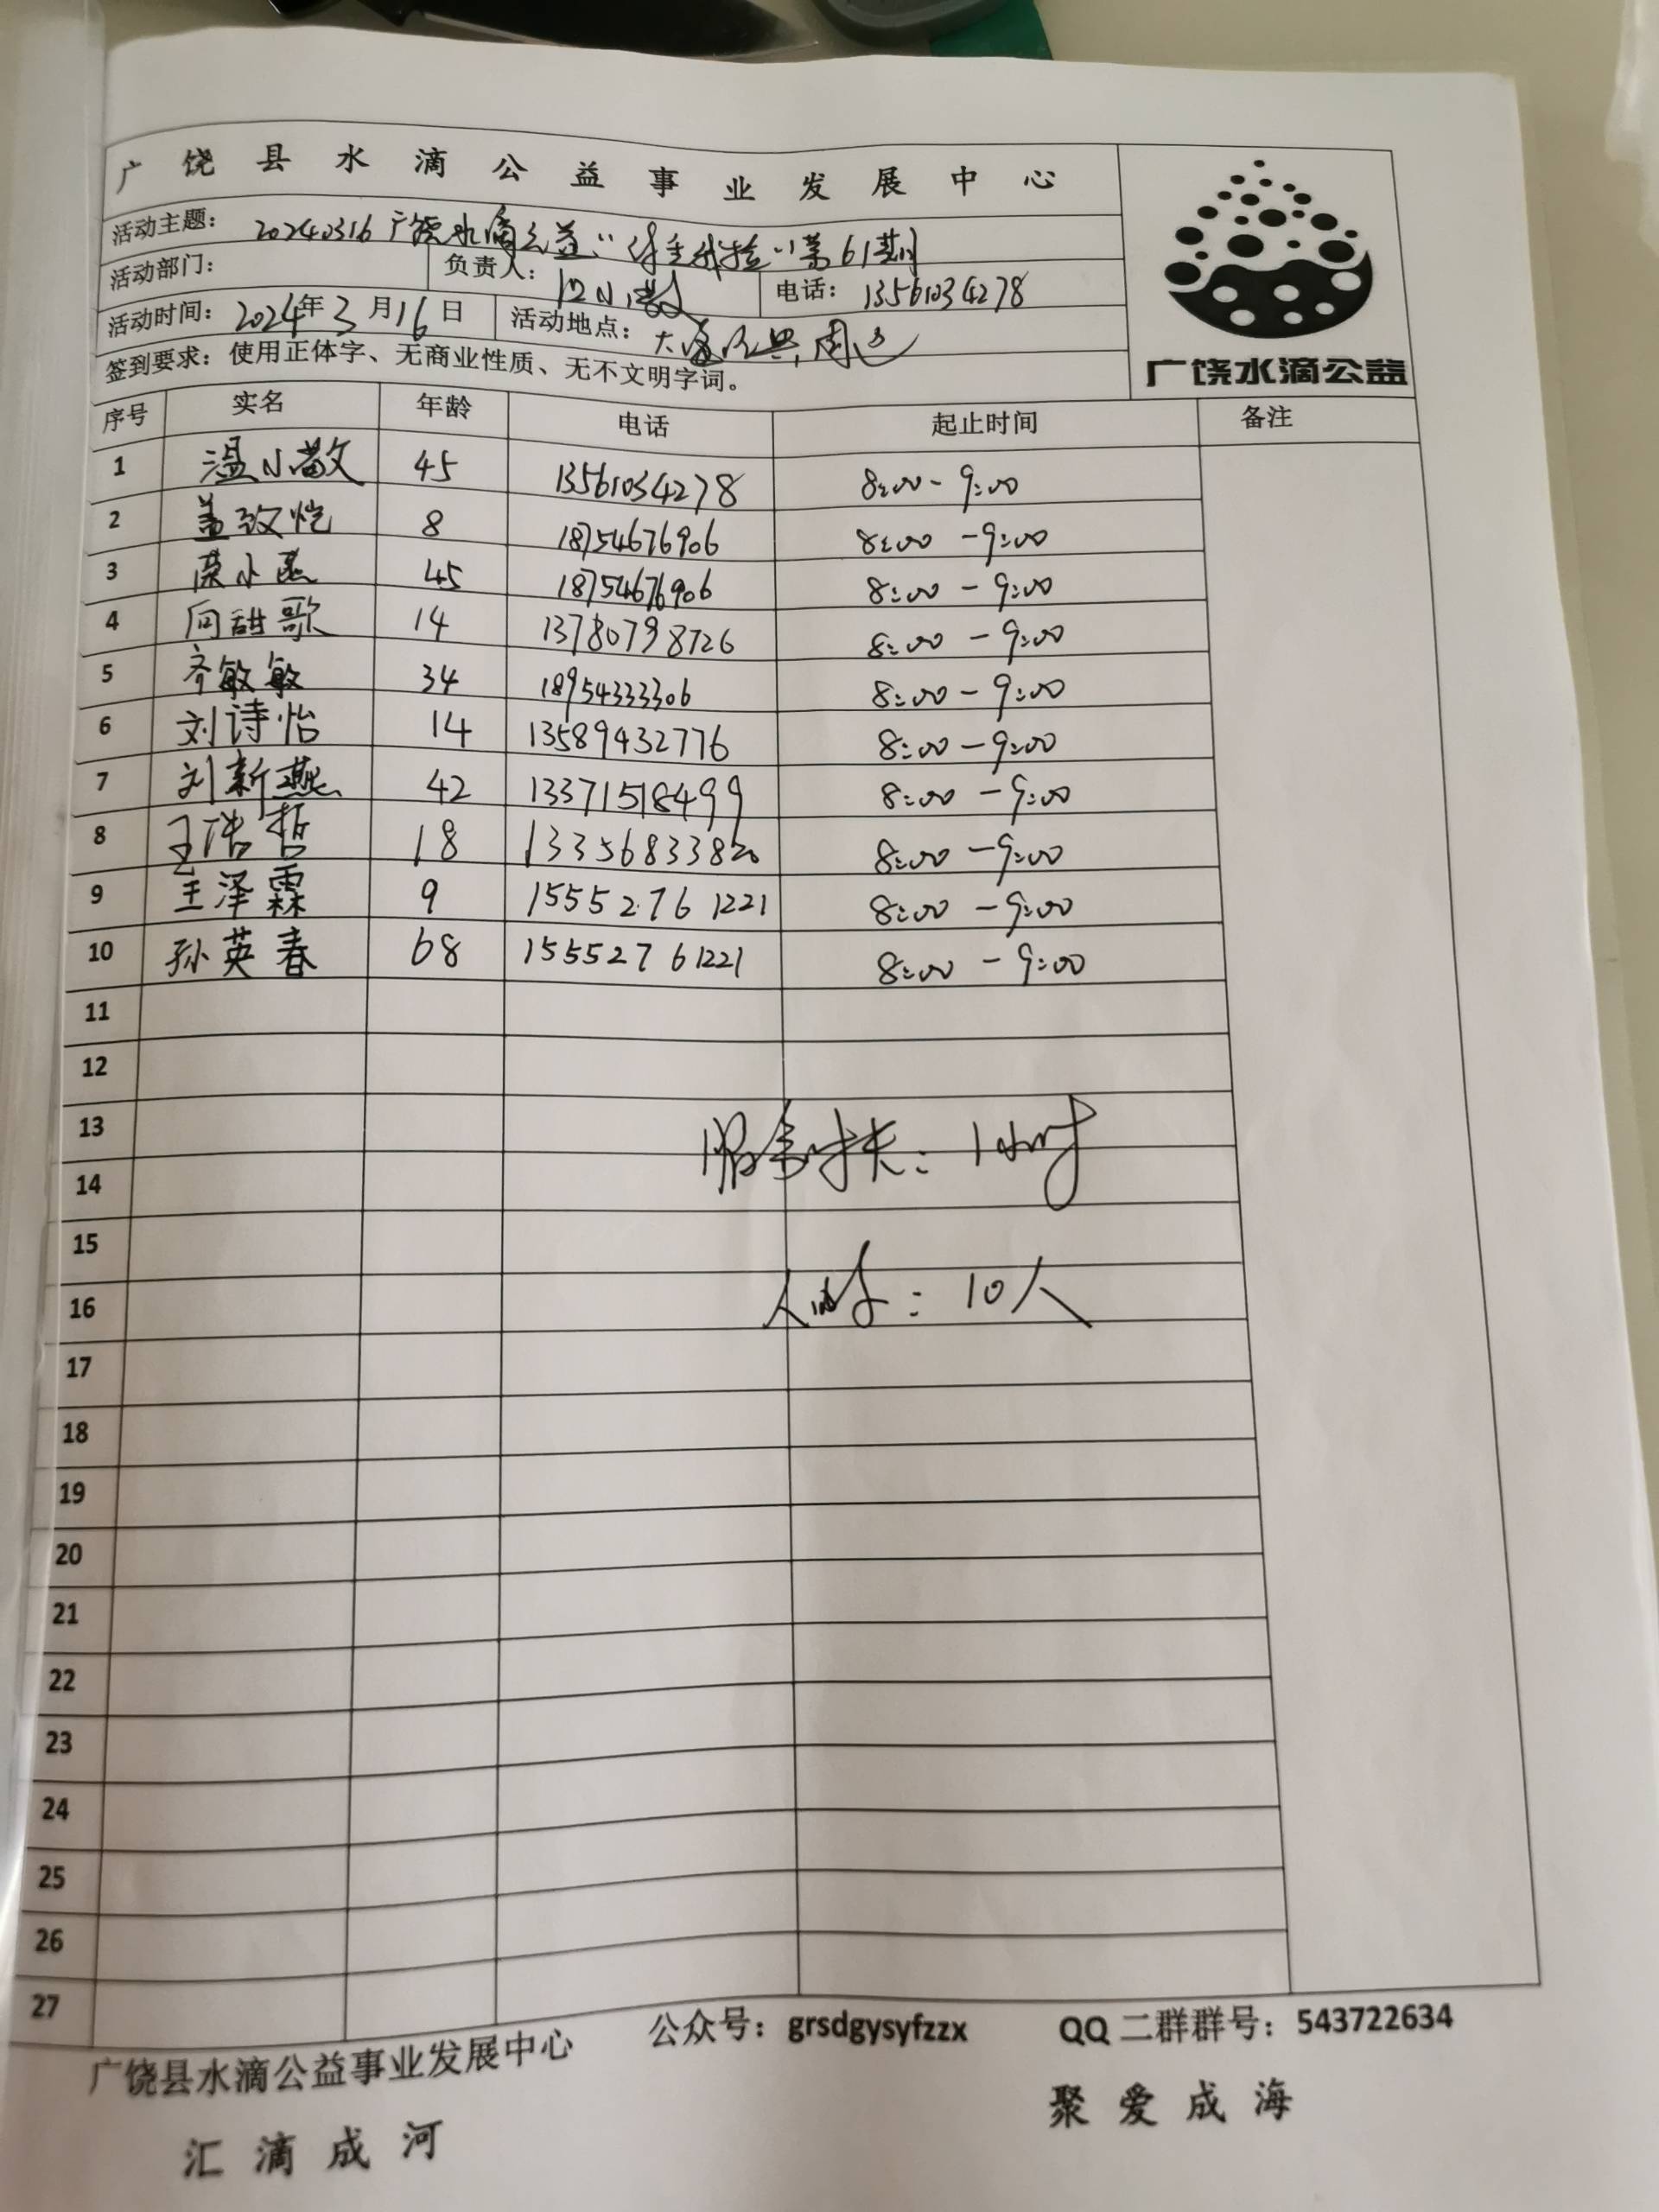 广饶县水滴公益事业发展中心
活动主题： 20240316 广饶水滴公益 第61期
活动部门： 负责人： 温小散 电话： 13561034278
活动时间： 2024年3月16日 活动地点： 周边
签到要求：使用正体字、无商业性质、无不文明字词。
广饶水滴公益
序号 实名 年龄 电话 起止时间 备注
1 温小散 45 13561034278 8:00-9:00
2 盖致恺 8 18754676906 8:00-9:00
3 荣小燕 45 18754676906 8:00-9:00
4 同甜歌 14 13780798726 8:00-9:00
5 齐敏敏 34 18954333306 8:00-9:00
6 刘诗怡 14 13589432776 8:00-9:00
7 刘新燕 42 13371518499 8:00-9:00
8 王浩哲 18 13356833820 8:00-9:00
9 王泽霖 9 15552761221 8:00-9:00
10 孙英春 68 15552761221 8:00-9:00
11
12
13
服务时长：1小时
14
15
16 人次：10人
17
18
19
20
21
22
23
24
25
26
27
广饶县水滴公益事业发展中心 公众号：grsdgysyfzzx QQ二群群号：543722634
汇滴成河 聚爱成海